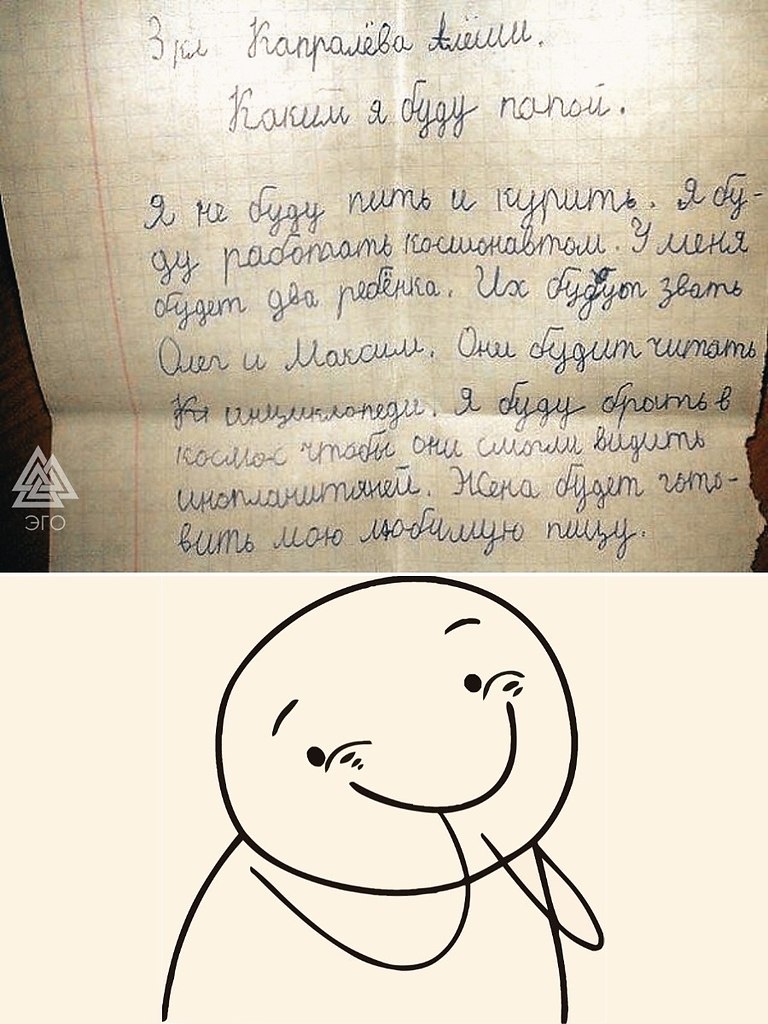 3 кл Капралёва Алёши.
Каким я буду папой.
Я не буду пить и курить. Я бу-
ду работать космонавтом. У меня
будет два ребёнка. Их будут звать
Олег и Максим. Они будит читать
инциклопеди. Я буду брать в
космос чтобы они смогли видить
инопланитяней. Жена будет гото-
вить мою любимую пищу.
ЭГО